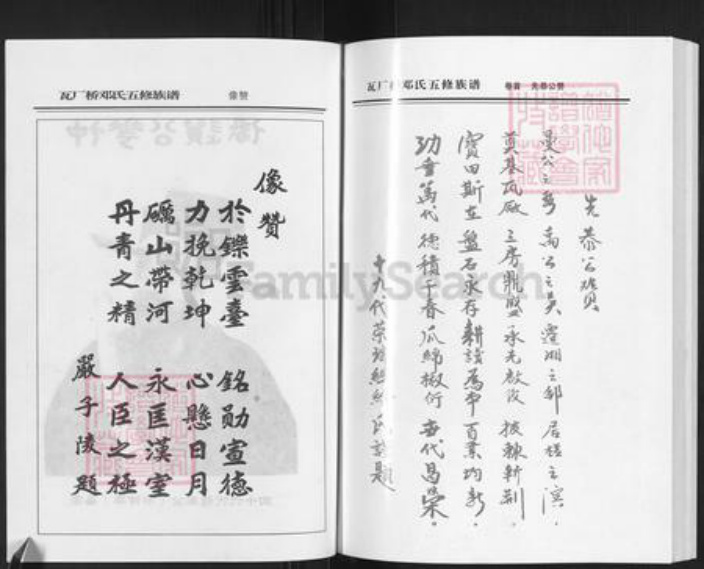 瓦厂桥邓氏五修族谱 卷首 先恭公赞
先恭公赞
曼公之
奠基瓦厰 三房鼎盛 承先啟後 披棘斬荆
寶田斯在 盤石永存 耕讀為本 百業均新
功垂萬代 德積千春 瓜綿椒衍 世代昌榮
十九代
瓦厂桥邓氏五修族谱 像赞
像贊
於鑠雲臺 銘勛宣德
力挽乾坤 心懸日月
礪山帶河 永匡漢室
丹青之精 人臣之極
嚴子陵題
FamilySearch